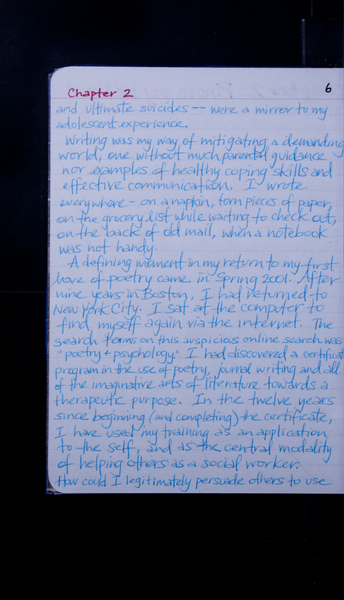 Chapter 2
6
and ultimate suicides -- were a mirror to my
adolescent experience.
Writing was my way of mitigating a demanding
world, one without much parental guidance
nor examples of healthy coping skills and
effective communication. I wrote
everywhere - on a napkin, torn pieces of paper,
on the grocery list while waiting to check out,
on the back of old mail, when a notebook
was not handy.
A defining moment in my return to my first
love of poetry came in Spring 2001. After
nine years in Boston, I had returned to
New York City. I sat at the computer to
find myself again via the internet. The
search terms on this auspicious online search was
"poetry + psychology." I had discovered a certificate
program in the use of poetry, journal writing and all
of the imaginative arts of literature towards a
therapeutic purpose. In the twelve years
since beginning (and completing) the certificate,
I have used my training as an application
to the self, and as the central modality
of helping others as a social worker.
How could I legitimately persuade others to use